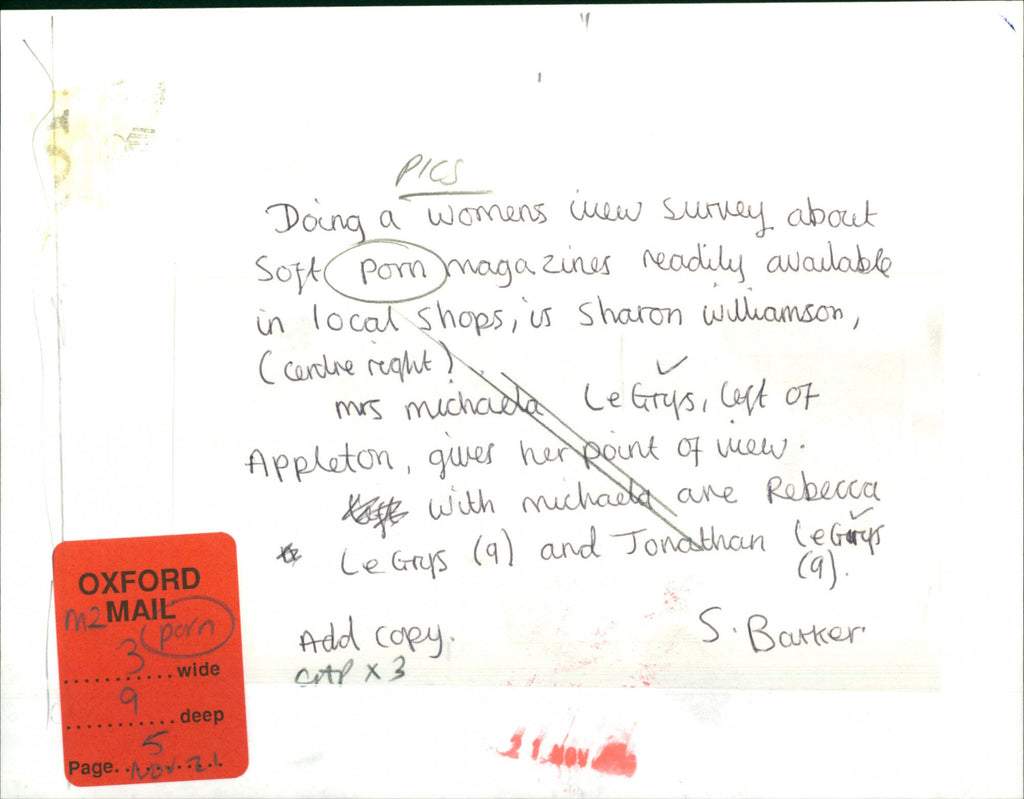 PICS
Doing a womens view survey about
soft porn magazines readily available
in local shops, is Sharon Williamson,
(centre right).
mrs michaela Le Grys, left of
Appleton, gives her point of view.
with michaela are Rebecca
Le Grys (9) and Jonathan Le Grys
(9).
Add copy.
S. Barker
CAP x 3
OXFORD
MAIL
M2 porn
3 wide
9 deep
Page 5
NOV 21
21 NOV